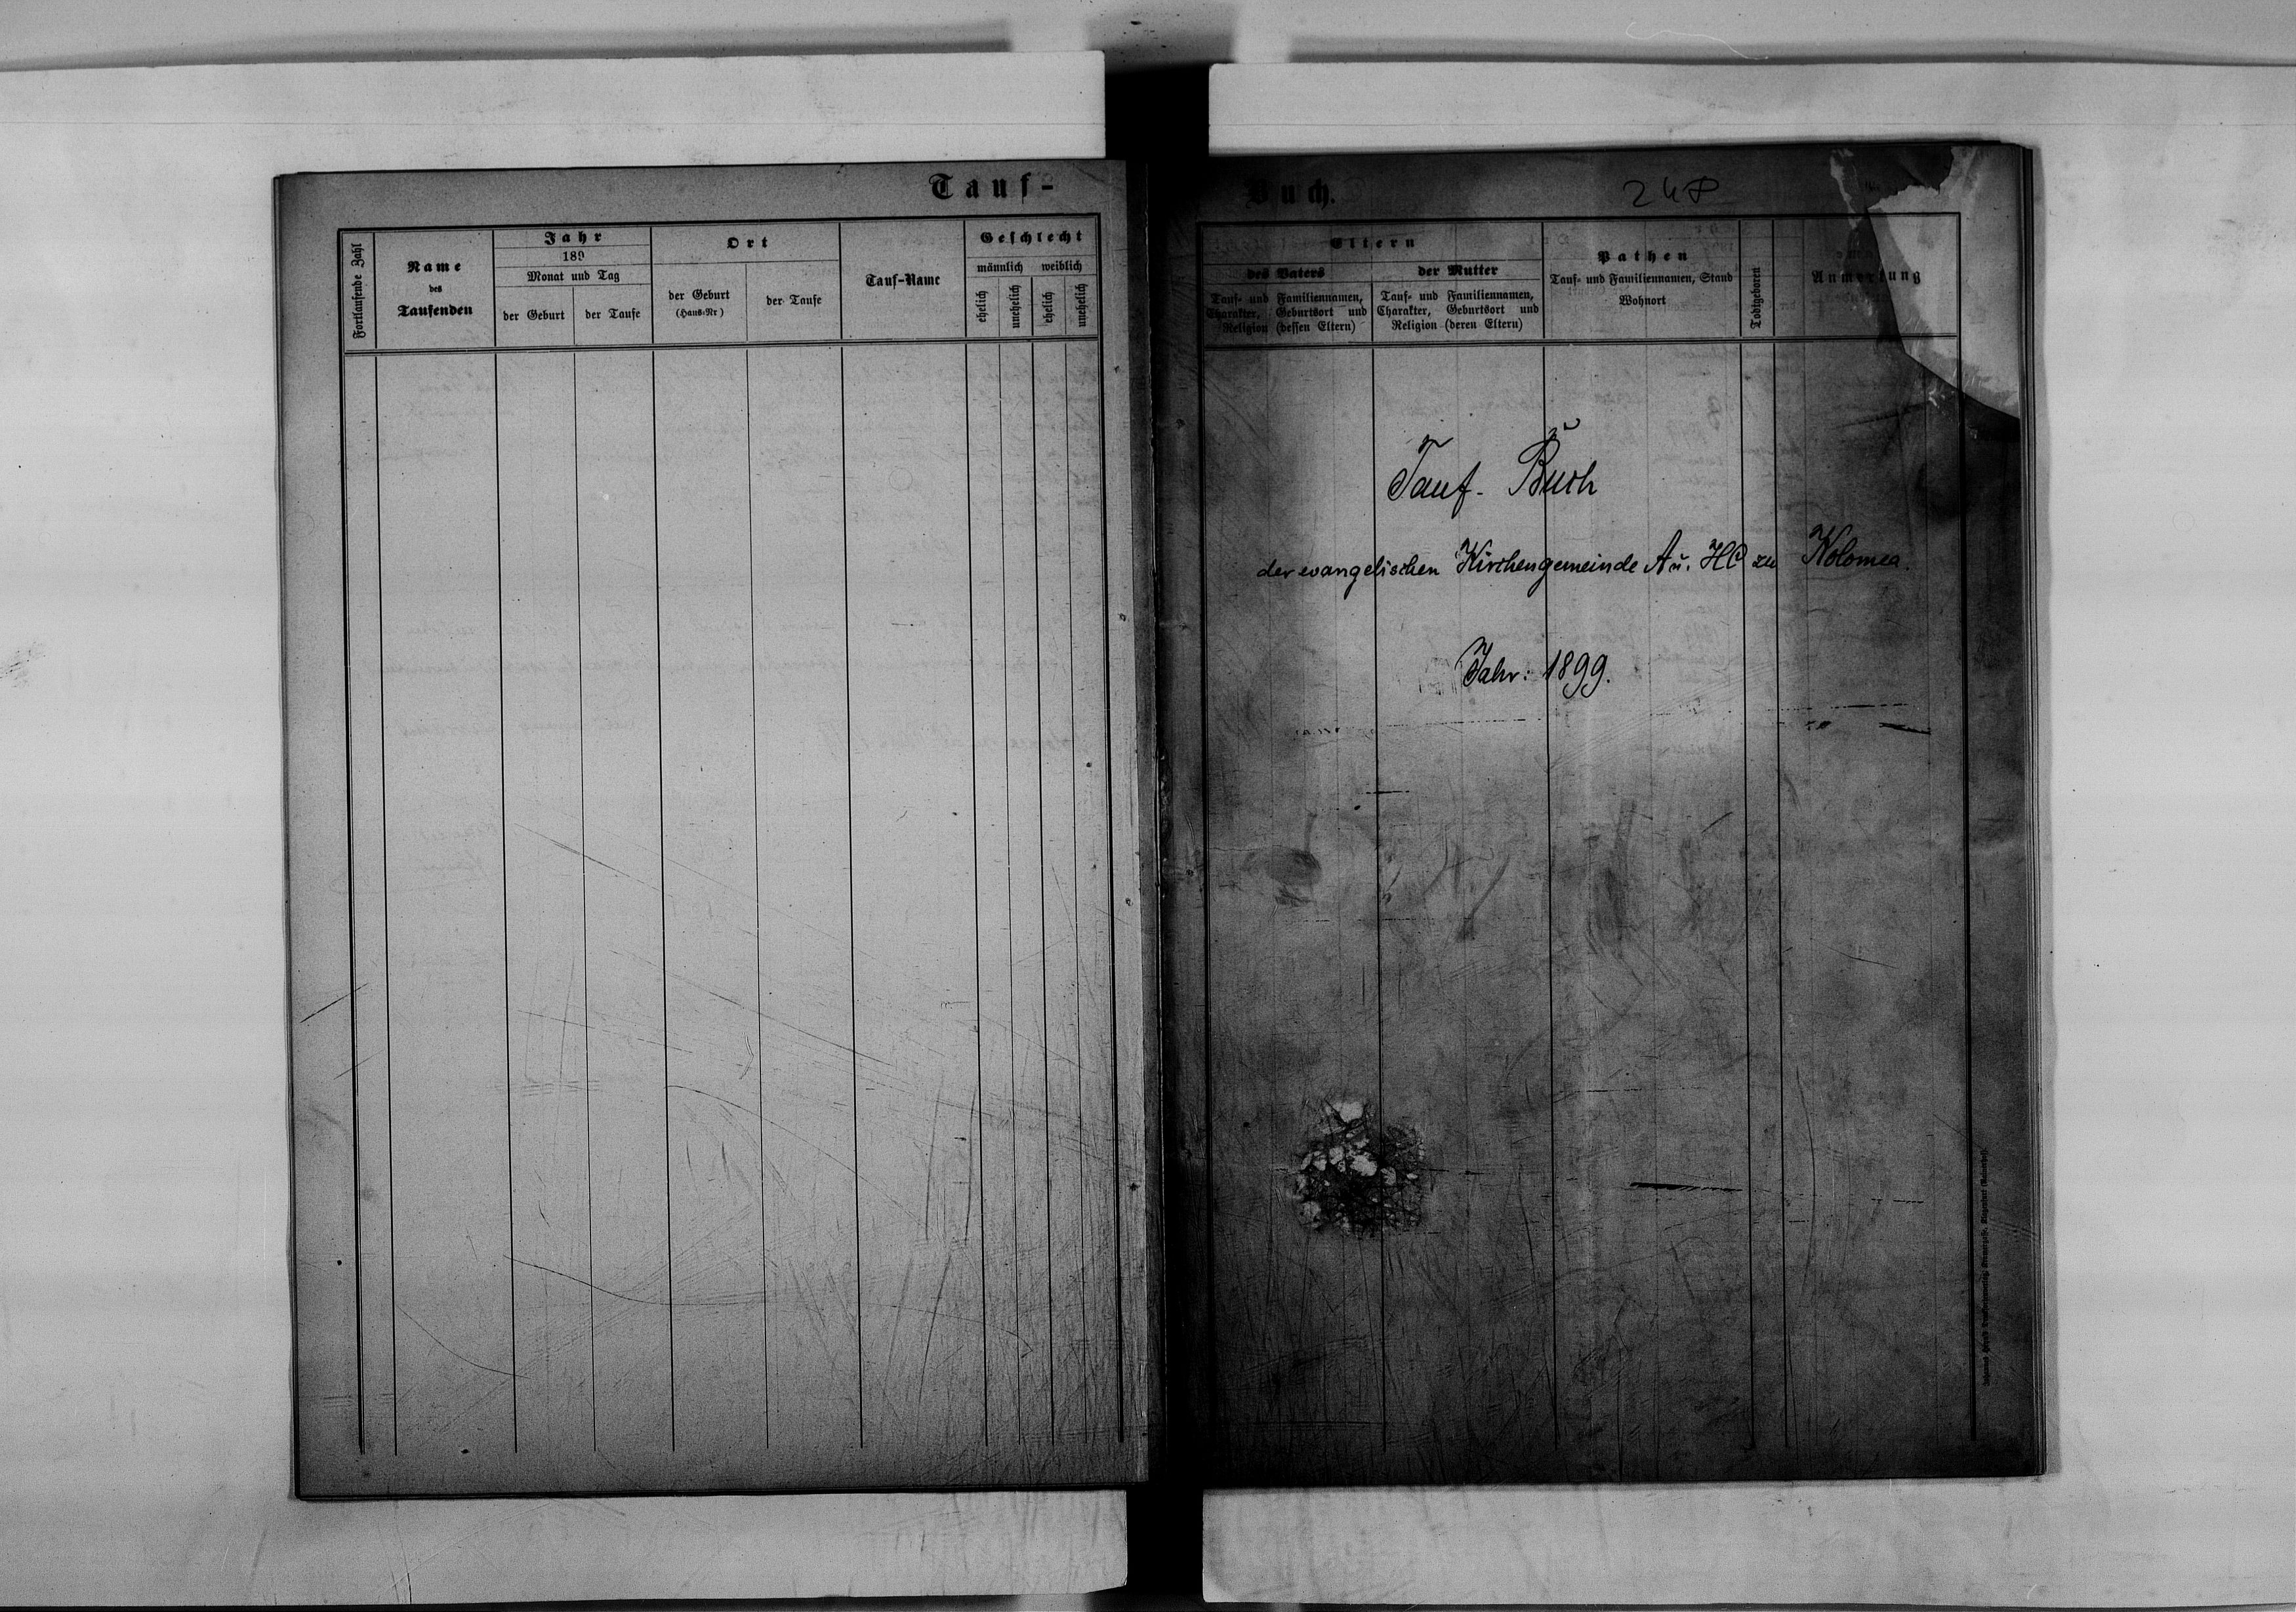 Tauf-
Fortlaufende Zahl
Name
des
Taufenden
Jahr
189
Monat und Tag
der Geburt
der Taufe
Ort
der Geburt
(Haus-Nr)
der Taufe
Tauf-Name
Geschlecht
männlich weiblich
ehelich
unehelich
ehelich
unehelich
Buch.
248
Eltern
des Vaters
Tauf- und Familiennamen,
Charakter, Geburtsort und
Religion (dessen Eltern)
der Mutter
Tauf- und Familiennamen,
Charakter, Geburtsort und
Religion (deren Eltern)
Pathen
Tauf- und Familiennamen, Stand
Wohnort
Todtgeboren
Anmerkung
Tauf- Buch
der evangelischen Kirchengemeinde A u. HC zu Kolomea.
Jahr: 1899.